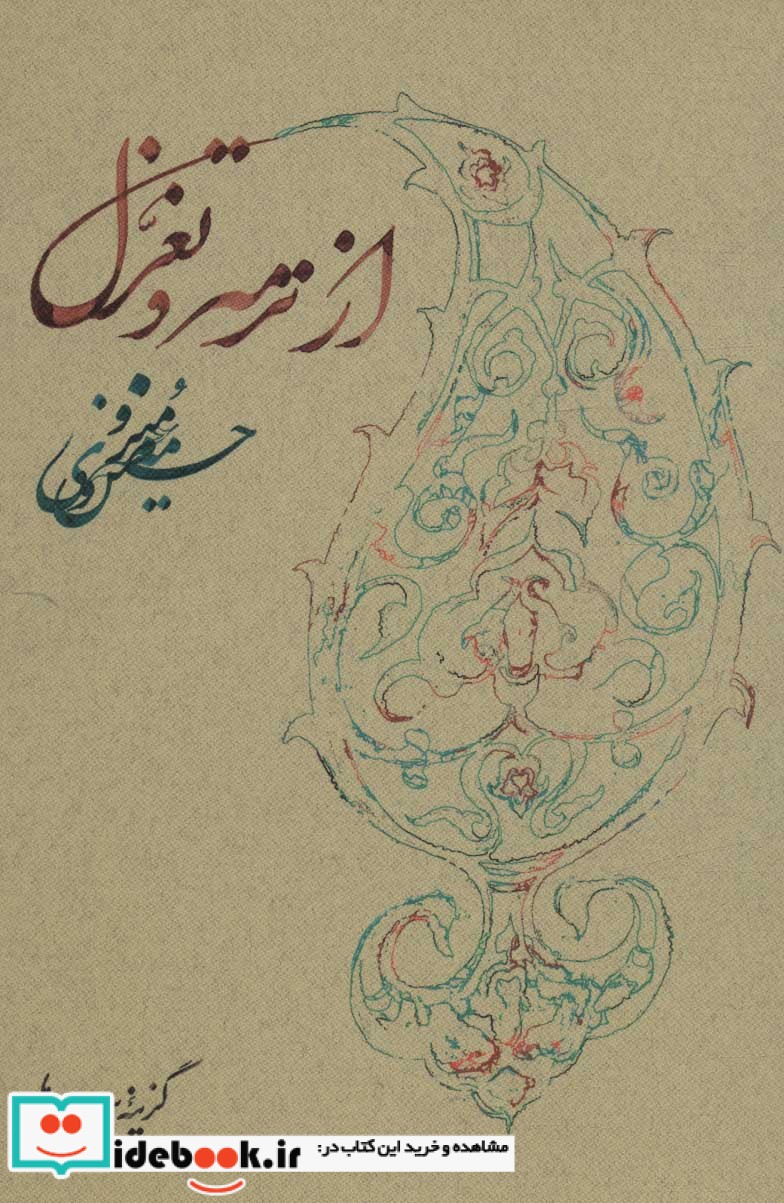 از ترمه و تغزّل
حسین مُنزوی
گزینهٔ
مشاهده و خرید این کتاب در:
idebook.ir